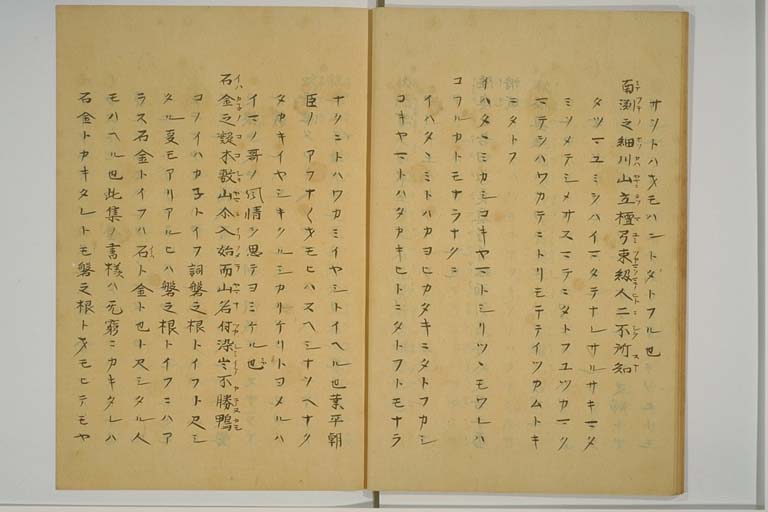 サントハオモハントダトフル也
南渕之細川山立檀弓束級人二不所知
タツマユミシハイマタテナレサルサキマタ
ミソメテシメサスマテニタトフユツカマク
マテシハワカテニトリモテテイツカムトキ
ニタトフ
イハタヽミカシコキヤマトシリツヽモワレハ
コフルカトモナラナクニ
イハタヽミトハカヨヒカタキニタトフカシ
コキヤマトハタカキヒトニタトフトモナラ
ナクニトハワカミイヤシトイヘル也業平朝
臣ノ アフナ〱オモヒハスヘシナソヘナク
タカキイヤシキクルシカリケリトヨメルハ
イマノ哥ノ風情ヲ思テヨミケル也
石金之凝木敷山尓入始而山名付染出不勝鴨
コノイハカ子トイフ詞磐之根トイフト尺シ
タル夏モアリアルヒハ磐之根トイフニハア
ラス石金トイフハ石ト金ト也ト尺シタル人
モハヘル也此集ノ書様ハ无窮ニカキタレハ
石金トカキタレトモ磐之根トオモヒテモヤ